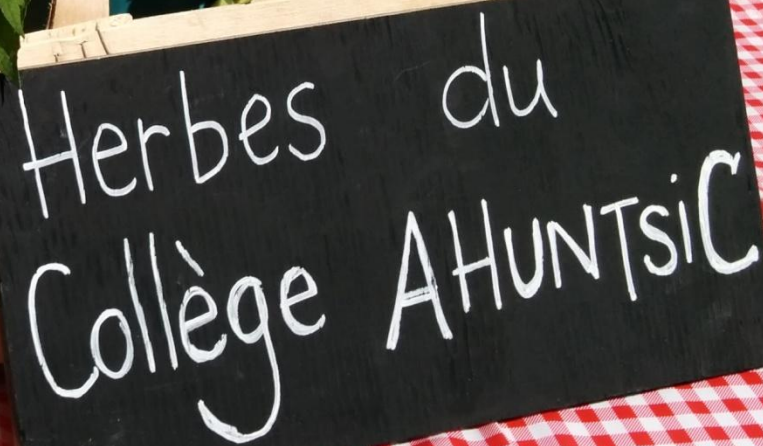 Herbes du
Collège AHUNTSiC